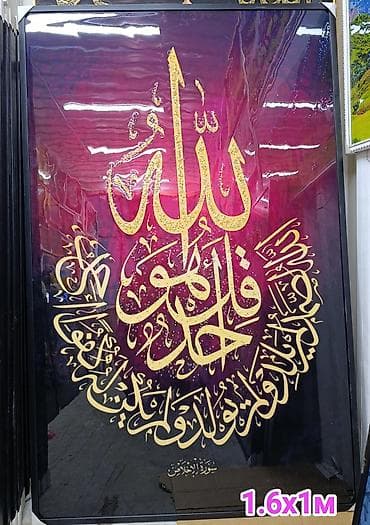 قل هو الله أحد
الله الصمد لم يلد ولم يولد ولم يكن له كفوا أحد
سورة الإخلاص
1.6x1м